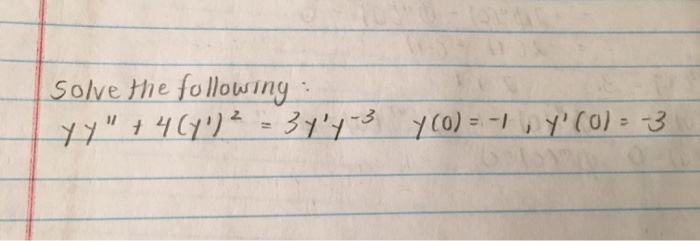 Solve the following :
yy" + 4(y')² = 3y'y⁻³ y(0) = -1 , y'(0) = -3